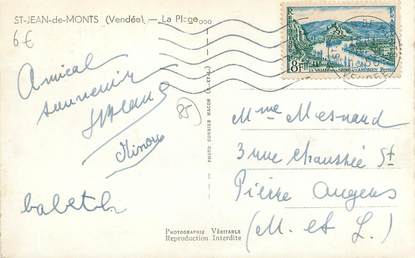 ST-JEAN-de-MONTS (Vendée). — La Plage...
6€
Amical
souvenir
85
babeth
PHOTO COMBIER MACON
PHOTOGRAPHIE VÉRITABLE
Reproduction Interdite
8F
Mme Mesnard
3 rue Chaussée St
Pierre Angers
(M. et L.)